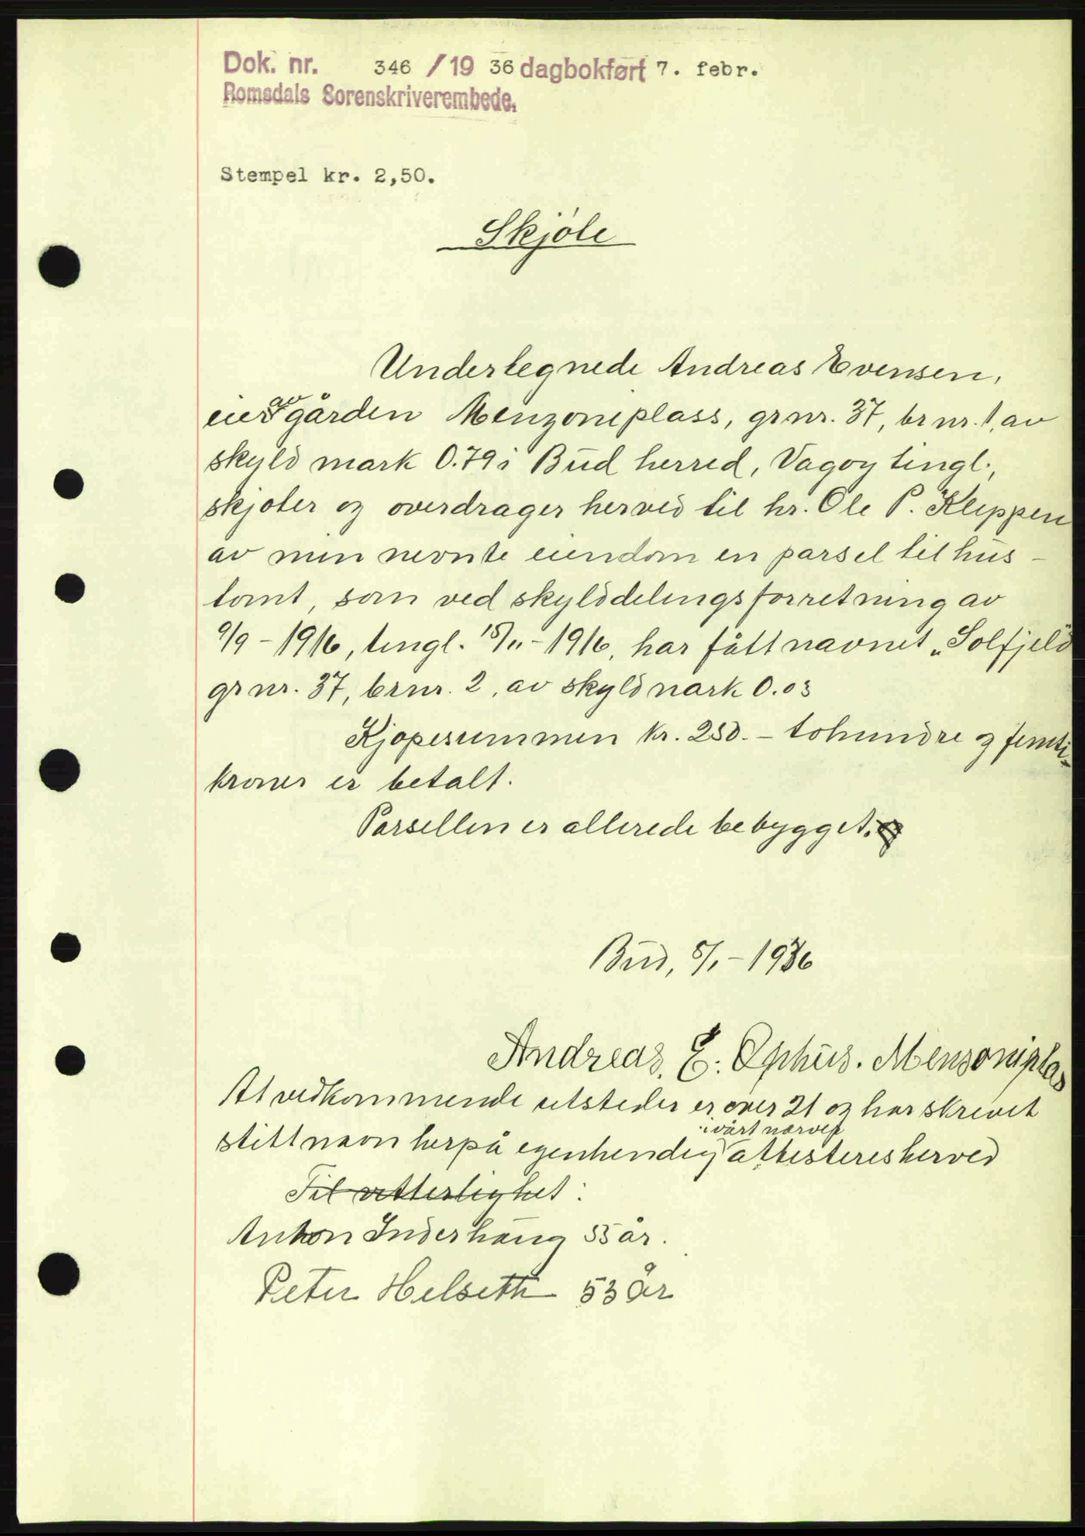 Dok. nr. 346 /19 36 dagbokført 7. febr.
Romsdals Sorenskriverembede.
Stempel kr. 2,50.
Skjøte
Undertegnede Andreas Evensen,
eier av gården Menzoniplass, grnr. 37, brnr. 1, av
skyld mark 0.79 i Bud herred, Vagøy tingl.,
skjøter og overdrager herved til hr. Ole P. Kleppen
av min nevnte eiendom en parsel til hus-
tomt, som ved skylddelingsforretning av
9/9 - 1916, tingl. 15/11 - 1916, har fått navnet „Solfjeld"
grnr. 37, brnr. 2, av skyld mark 0.03
Kjøpesummen kr. 250.- tohundre og femti-
kroner er betalt.
Parsellen er allerede bebygget.
Bud, 5/1 - 1936
Andreas. E. Ophus. Mensoniplas
At vedkommende utsteder er over 21 og har skrevet
sitt navn herpå egenhendig i vårt nærver attesteres herved
Til vitterlighet:
Anton Inderhaug 55 år.
Peter Helseth 53 år